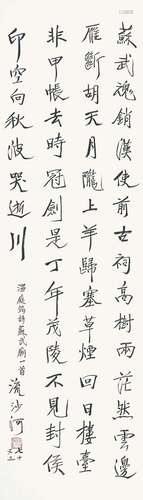 蘇武魂銷漢使前古祠高樹兩茫然雲邊
雁斷胡天月隴上羊歸塞草煙回日樓臺
非甲帳去時冠劍是丁年茂陵不見封侯
印空向秋波哭逝川
溫庭筠詩蘇武廟一首
流沙河